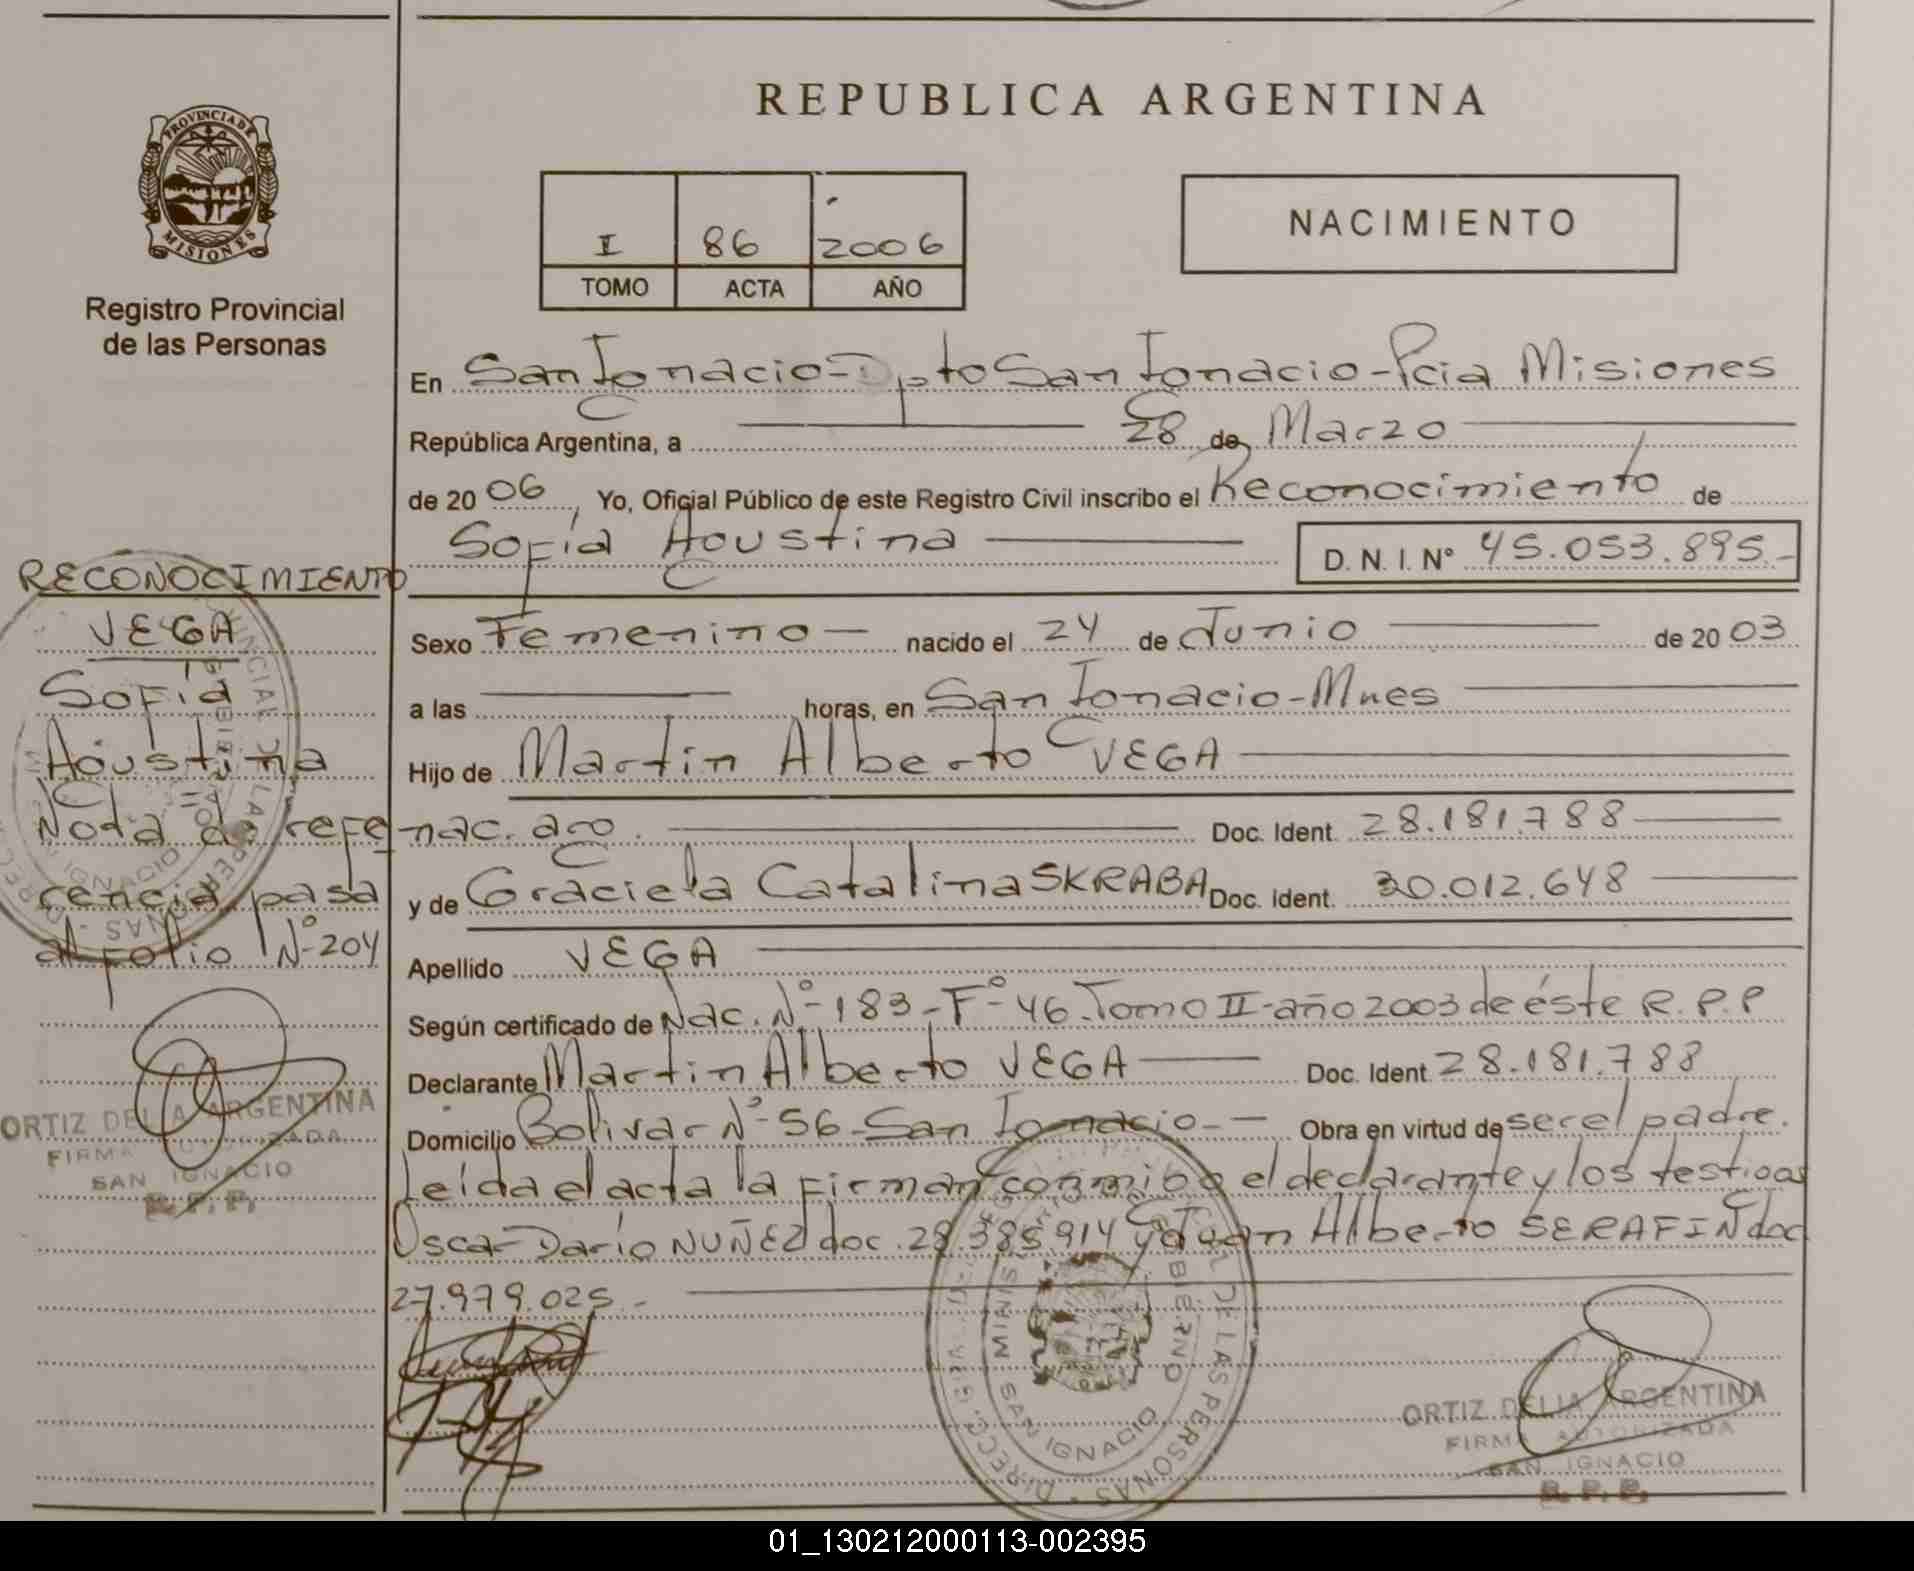 REPUBLICA ARGENTINA
PROVINCIA DE
MISIONES
Registro Provincial
de las Personas
I 86 2006
TOMO ACTA AÑO
NACIMIENTO
En San Ignacio-Dpto San Ignacio-Pcia Misiones
República Argentina, a 28 de Marzo
de 20 06, Yo, Oficial Público de este Registro Civil inscribo el Reconocimiento de
Sofía Agustina D. N. I. N° 45.053.895.-
Sexo Femenino nacido el 24 de Junio de 20 03
a las horas, en San Ignacio-Mnes
Hijo de Martin Alberto VEGA
nac. arg. Doc. Ident. 28.181.788
y de Graciela Catalina SKRABA Doc. Ident. 30.012.648
Apellido VEGA
Según certificado de Nac. N°-183-F°-46-Tomo II-año 2003 de éste R.P.P
Declarante Martin Alberto VEGA Doc. Ident. 28.181.788
Domicilio Bolivar N°-56-San Ignacio.- Obra en virtud de ser el padre.
Leída el acta la firman conmigo el declarante y los testigos
Oscar Darío NUÑEZ doc. 28.385.914 y Juan Alberto SERAFIN doc
27.979.025.-
RECONOCIMIENTO
VEGA
Sofía
Agustina
Nota de refe
rencia pasa
al folio N°-204
ORTIZ DELIA ARGENTINA
FIRMA AUTORIZADA
SAN IGNACIO
R. P. P.
MINIS
SAN IGNACIO
DE LAS PERSONAS
ORTIZ DELIA ARGENTINA
FIRMA AUTORIZADA
SAN IGNACIO
R. P. P.
01_130212000113-002395